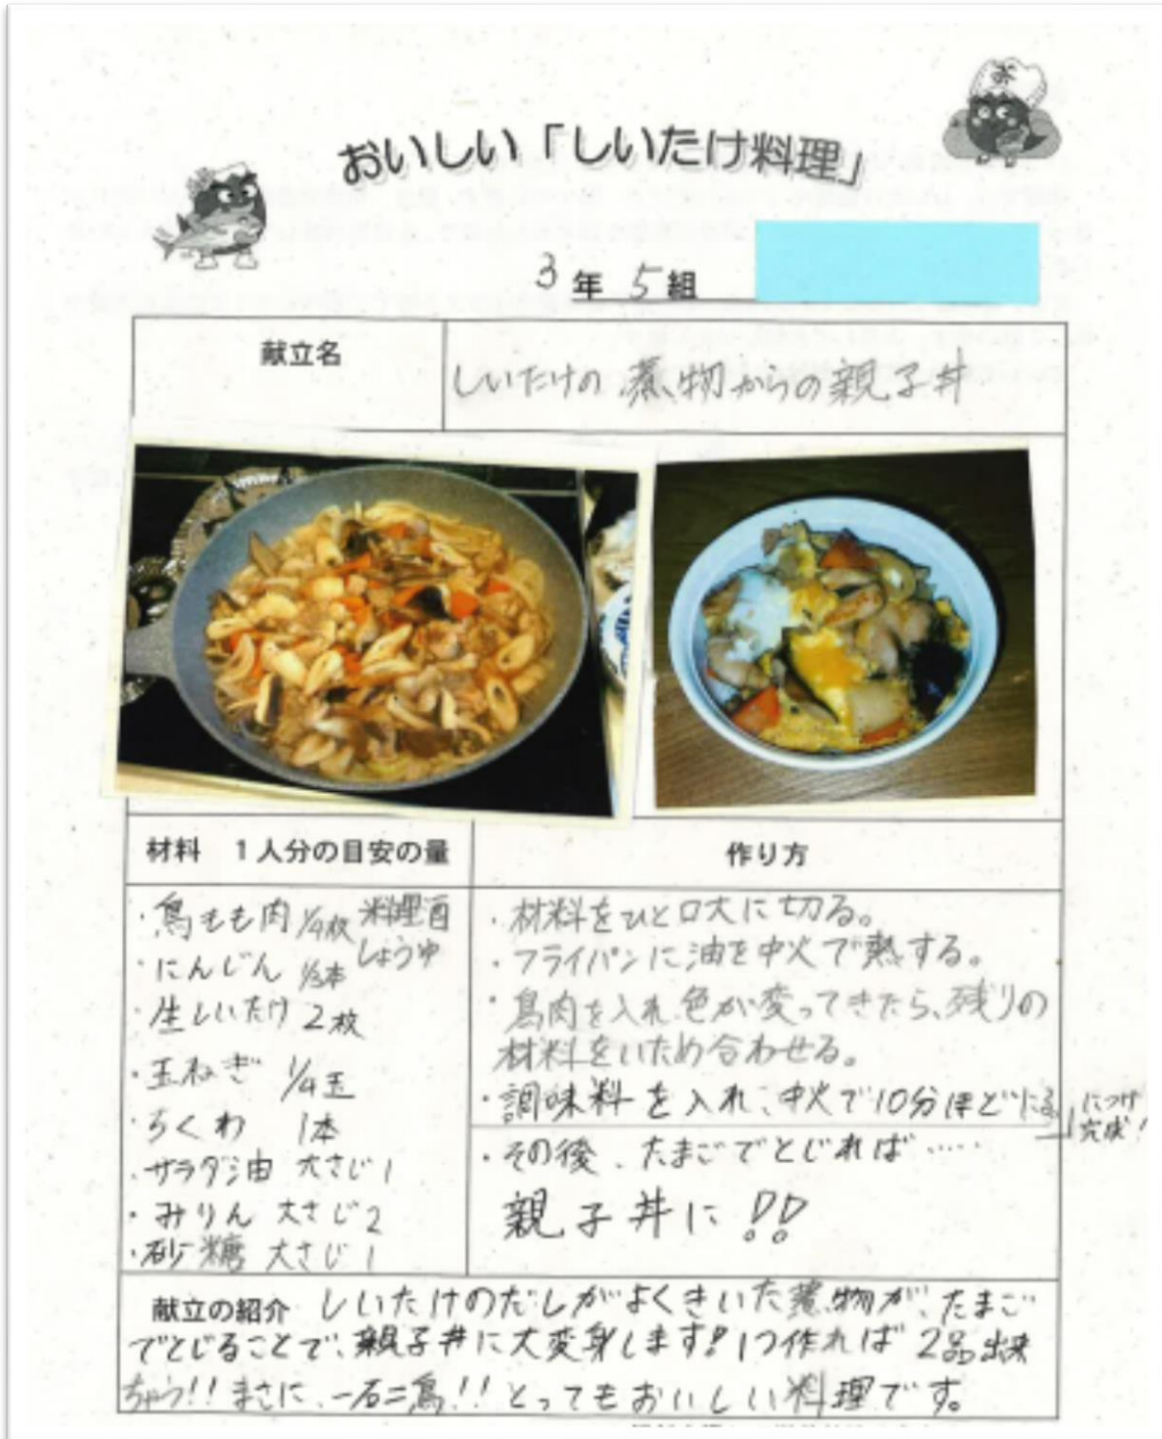 おいしい「しいたけ料理」
3年 5組
献立名
しいたけの煮物からの親子丼
材料 1人分の目安の量
・鳥もも肉 1/4枚 料理酒
・にんじん 1/3本 しょうゆ
・生しいたけ 2枚
・玉ねぎ 1/4玉
・ちくわ 1本
・サラダ油 大さじ1
・みりん 大さじ2
・砂糖 大さじ1
作り方
・材料をひと口大に切る。
・フライパンに油を中火で熱する。
・鳥肉を入れ色が変ってきたら、残りの
材料をいため合わせる。
・調味料を入れ、中火で10分ほどにる
につけ
完成!
・その後、たまごでとじれば……
親子丼に!!
献立の紹介 しいたけのだしがよくきいた煮物が、たまご
でとじることで、親子丼に大変身します!1つ作れば2品出来
ちゃう!!まさに、一石二鳥!!とってもおいしい料理です。